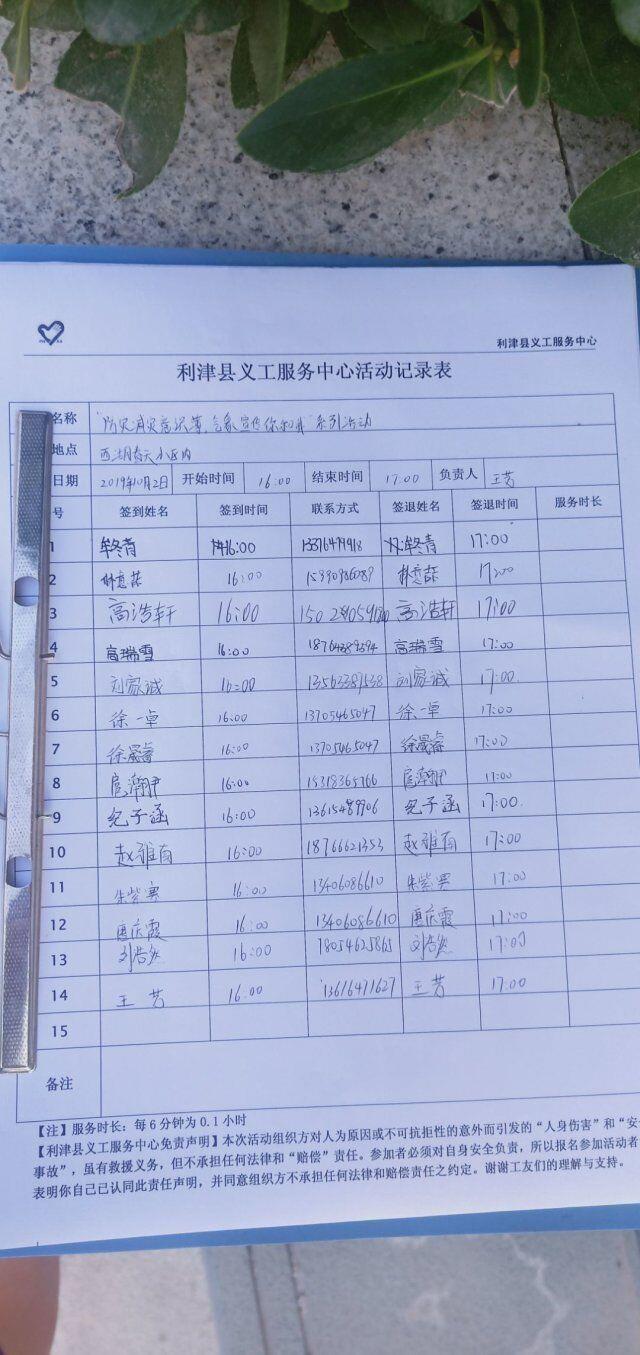 利津县义工服务中心
利津县义工服务中心活动记录表
名称 "防灾减灾意识篇,气象宣传你和我"系列活动
地点 西湖春天小区内
日期 2019年10月2日 开始时间 16:00 结束时间 17:00 负责人 王芳
号 签到姓名 签到时间 联系方式 签退姓名 签退时间 服务时长
1 牟冬青 16:00 牟冬青 17:00
2 16:00 15990986089 17:00
3 高浩轩 16:00 高浩轩 17:00
4 高瑞雪 16:00 18764389594 高瑞雪 17:00
5 刘家诚 16:00 13563389538 刘家诚 17:00
6 徐一卓 16:00 13705465047 徐一卓 17:00
7 徐晟睿 16:00 13705465047 徐晟睿 17:00
8 16:00 15318365766 17:00
9 纪子涵 16:00 13615489906 纪子涵 17:00
10 赵雅萌 16:00 18766621353 赵雅萌 17:00
11 16:00 13406086610 17:00
12 唐庆霞 16:00 13406086610 唐庆霞 17:00
13 刘浩然 16:00 18054625865 刘浩然 17:00
14 王芳 16:00 13616471627 王芳 17:00
15
备注
【注】服务时长:每6分钟为0.1小时
【利津县义工服务中心免责声明】本次活动组织方对人为原因或不可抗拒性的意外而引发的“人身伤害”和“安
事故”,虽有救援义务,但不承担任何法律和“赔偿”责任。参加者必须对自身安全负责,所以报名参加活动者
表明你自己已认同此责任声明,并同意组织方不承担任何法律和赔偿责任之约定。谢谢工友们的理解与支持。